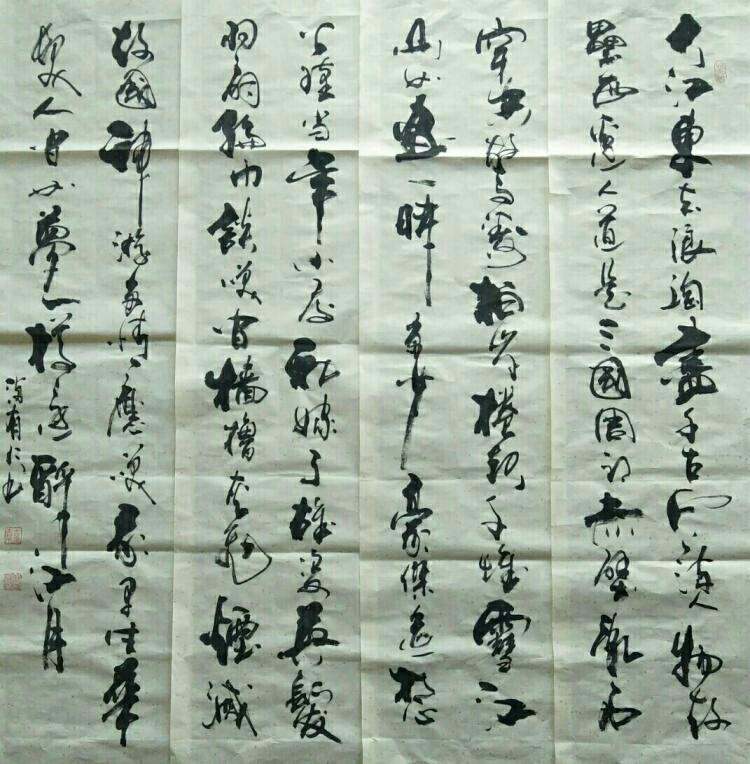 大江東去浪淘盡千古風流人物故
壘西邊人道是三國周郎赤壁亂石
穿空驚濤拍岸捲起千堆雪江
山如畫一時多少豪傑遙想
公瑾當年小喬初嫁了雄姿英發
羽扇綸巾談笑間檣櫓灰飛煙滅
故國神遊多情應笑我早生華
髮人間如夢一樽還酹江月